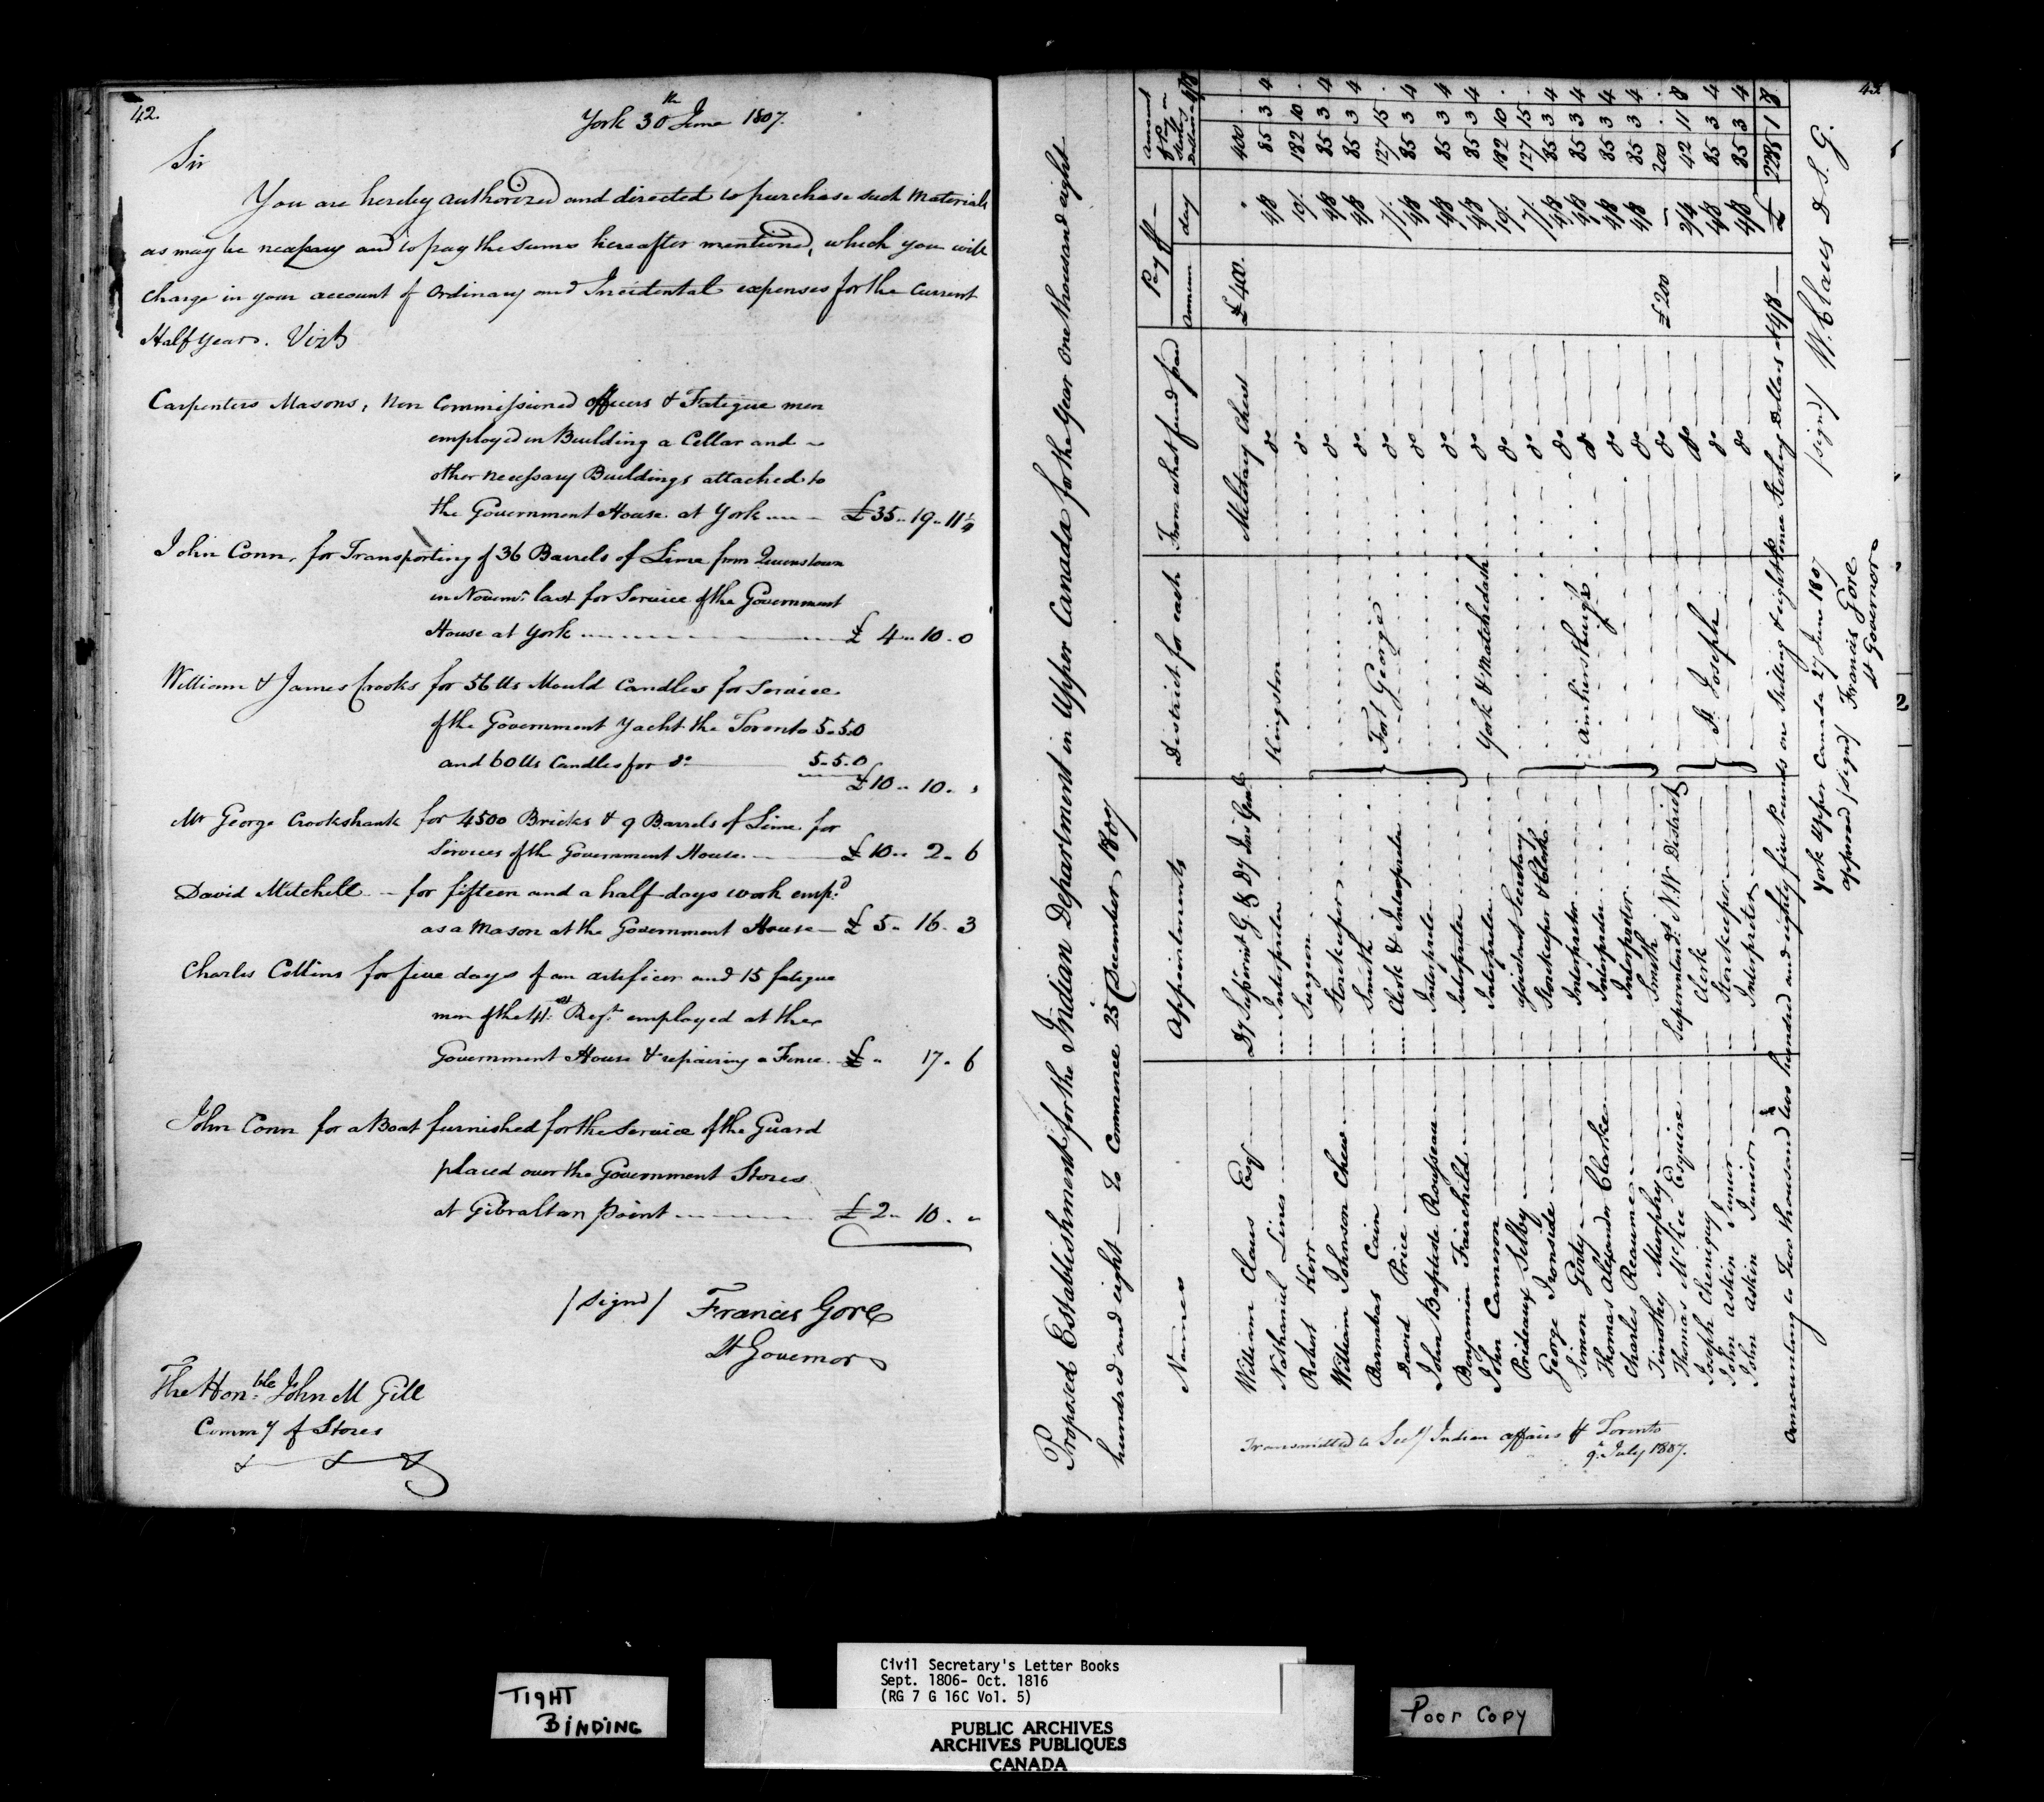 42.
York 30th June 1807.
Sir
You are hereby authorized and directed to purchase such Materials
as may be necessary and to pay the sums hereafter mentioned, which you will
charge in your account of Ordinary and Incidental expenses for the Current
Half year. Vizt
Carpenters Masons, Non Commissioned officers & Fatigue men
employed in Building a Cellar and
other necessary Buildings attached to
the Government House at York £35.. 19.. 11¼
John Conn, for Transporting of 36 Barrels of Lime from Queenstown
in Novemr last for Service of the Government
House at York £ 4.. 10.. 0
William & James Crooks for 56 lbs Mould Candles for Service
of the Government Yacht the Toronto 5.. 5.. 0
and 60 lbs Candles for do 5.. 5.. 0
£10.. 10.. "
Mr George Crookshank for 4500 Bricks & 9 Barrels of Lime for
Services of the Government House £10.. 2.. 6
David Mitchell for fifteen and a half days work empd
as a Mason at the Government House £ 5.. 16.. 3
Charles Collins for five days of an artificer and 15 fatigue
men of the 41st Regt employed at the
Government House & repairing a Fence £ " 17.. 6
John Conn for a Boat furnished for the service of the Guard
placed over the Government Stores
at Gibraltar Point £2.. 10.. "
/Signd/ Francis Gore
Lt Governor
The Honble John M Gill
Commy of Stores
43.
Proposed Establishment for the Indian Department in Upper Canada for the Year One thousand eight
hundred and eight — to Commence 25 December 1807
Names Appointments District for each From what fund paid Pay Annum day Amount of Pay in Sterling Dollars @ 4/8
William Claus Esqr Dy Superint G. & Dy Ins Genl Military Chest £400. " 400 . .
Nathaniel Lines Interpreter Kingston do 4/8 85 3 4
Robert Kerr Surgeon do 10/. 182 10 .
William Johnson Chew Storekeeper do 4/8 85 3 4
Barnabas Cain Smith Fort George do 4/8 85 3 4
David Price Clerk & Interpreter do 7/. 127 15 .
John Baptiste Rousseau Interpreter do 4/8 85 3 4
Benjamin Fairchild Interpreter do 4/8 85 3 4
John Cameron Interpreter York & Matchedash do 4/8 85 3 4
Prideaux Selby Assistant Secretary do 10/. 182 10 .
George Ironside Storekeeper & Clerk do 7/. 127 15 .
Simon Girty Interpreter Amherstburgh do 4/8 85 3 4
Thomas Alexander Clarke Interpreter do 4/8 85 3 4
Charles Reaume Interpreter do 4/8 85 3 4
Timothy Murphy Smith do 4/8 85 3 4
Thomas McKee Esquire Superintendt N. W District do £200 — 200 . .
Joseph Cheniquy Clerk do 2/4 42 11 8
John Askin Junir Storekeeper St Joseph do 4/8 85 3 4
John Askin Junior Interpreter do 4/8 85 3 4
Amounting to Two thousand two hundred and eighty five Pounds one Shilling & eight pence Sterling Dollars at 4/8 — £ 2285 1 8
/signd/ W. Claus D. S. G.
York Upper Canada 27 June 1807
approved /signd/ Francis Gore
Lt Governor
Transmitted to Secy Indian affairs Toronto
9th July 1807.
TIGHT
BINDING
Civil Secretary's Letter Books
Sept. 1806- Oct. 1816
(RG 7 G 16C Vol. 5)
PUBLIC ARCHIVES
ARCHIVES PUBLIQUES
CANADA
POOR COPY